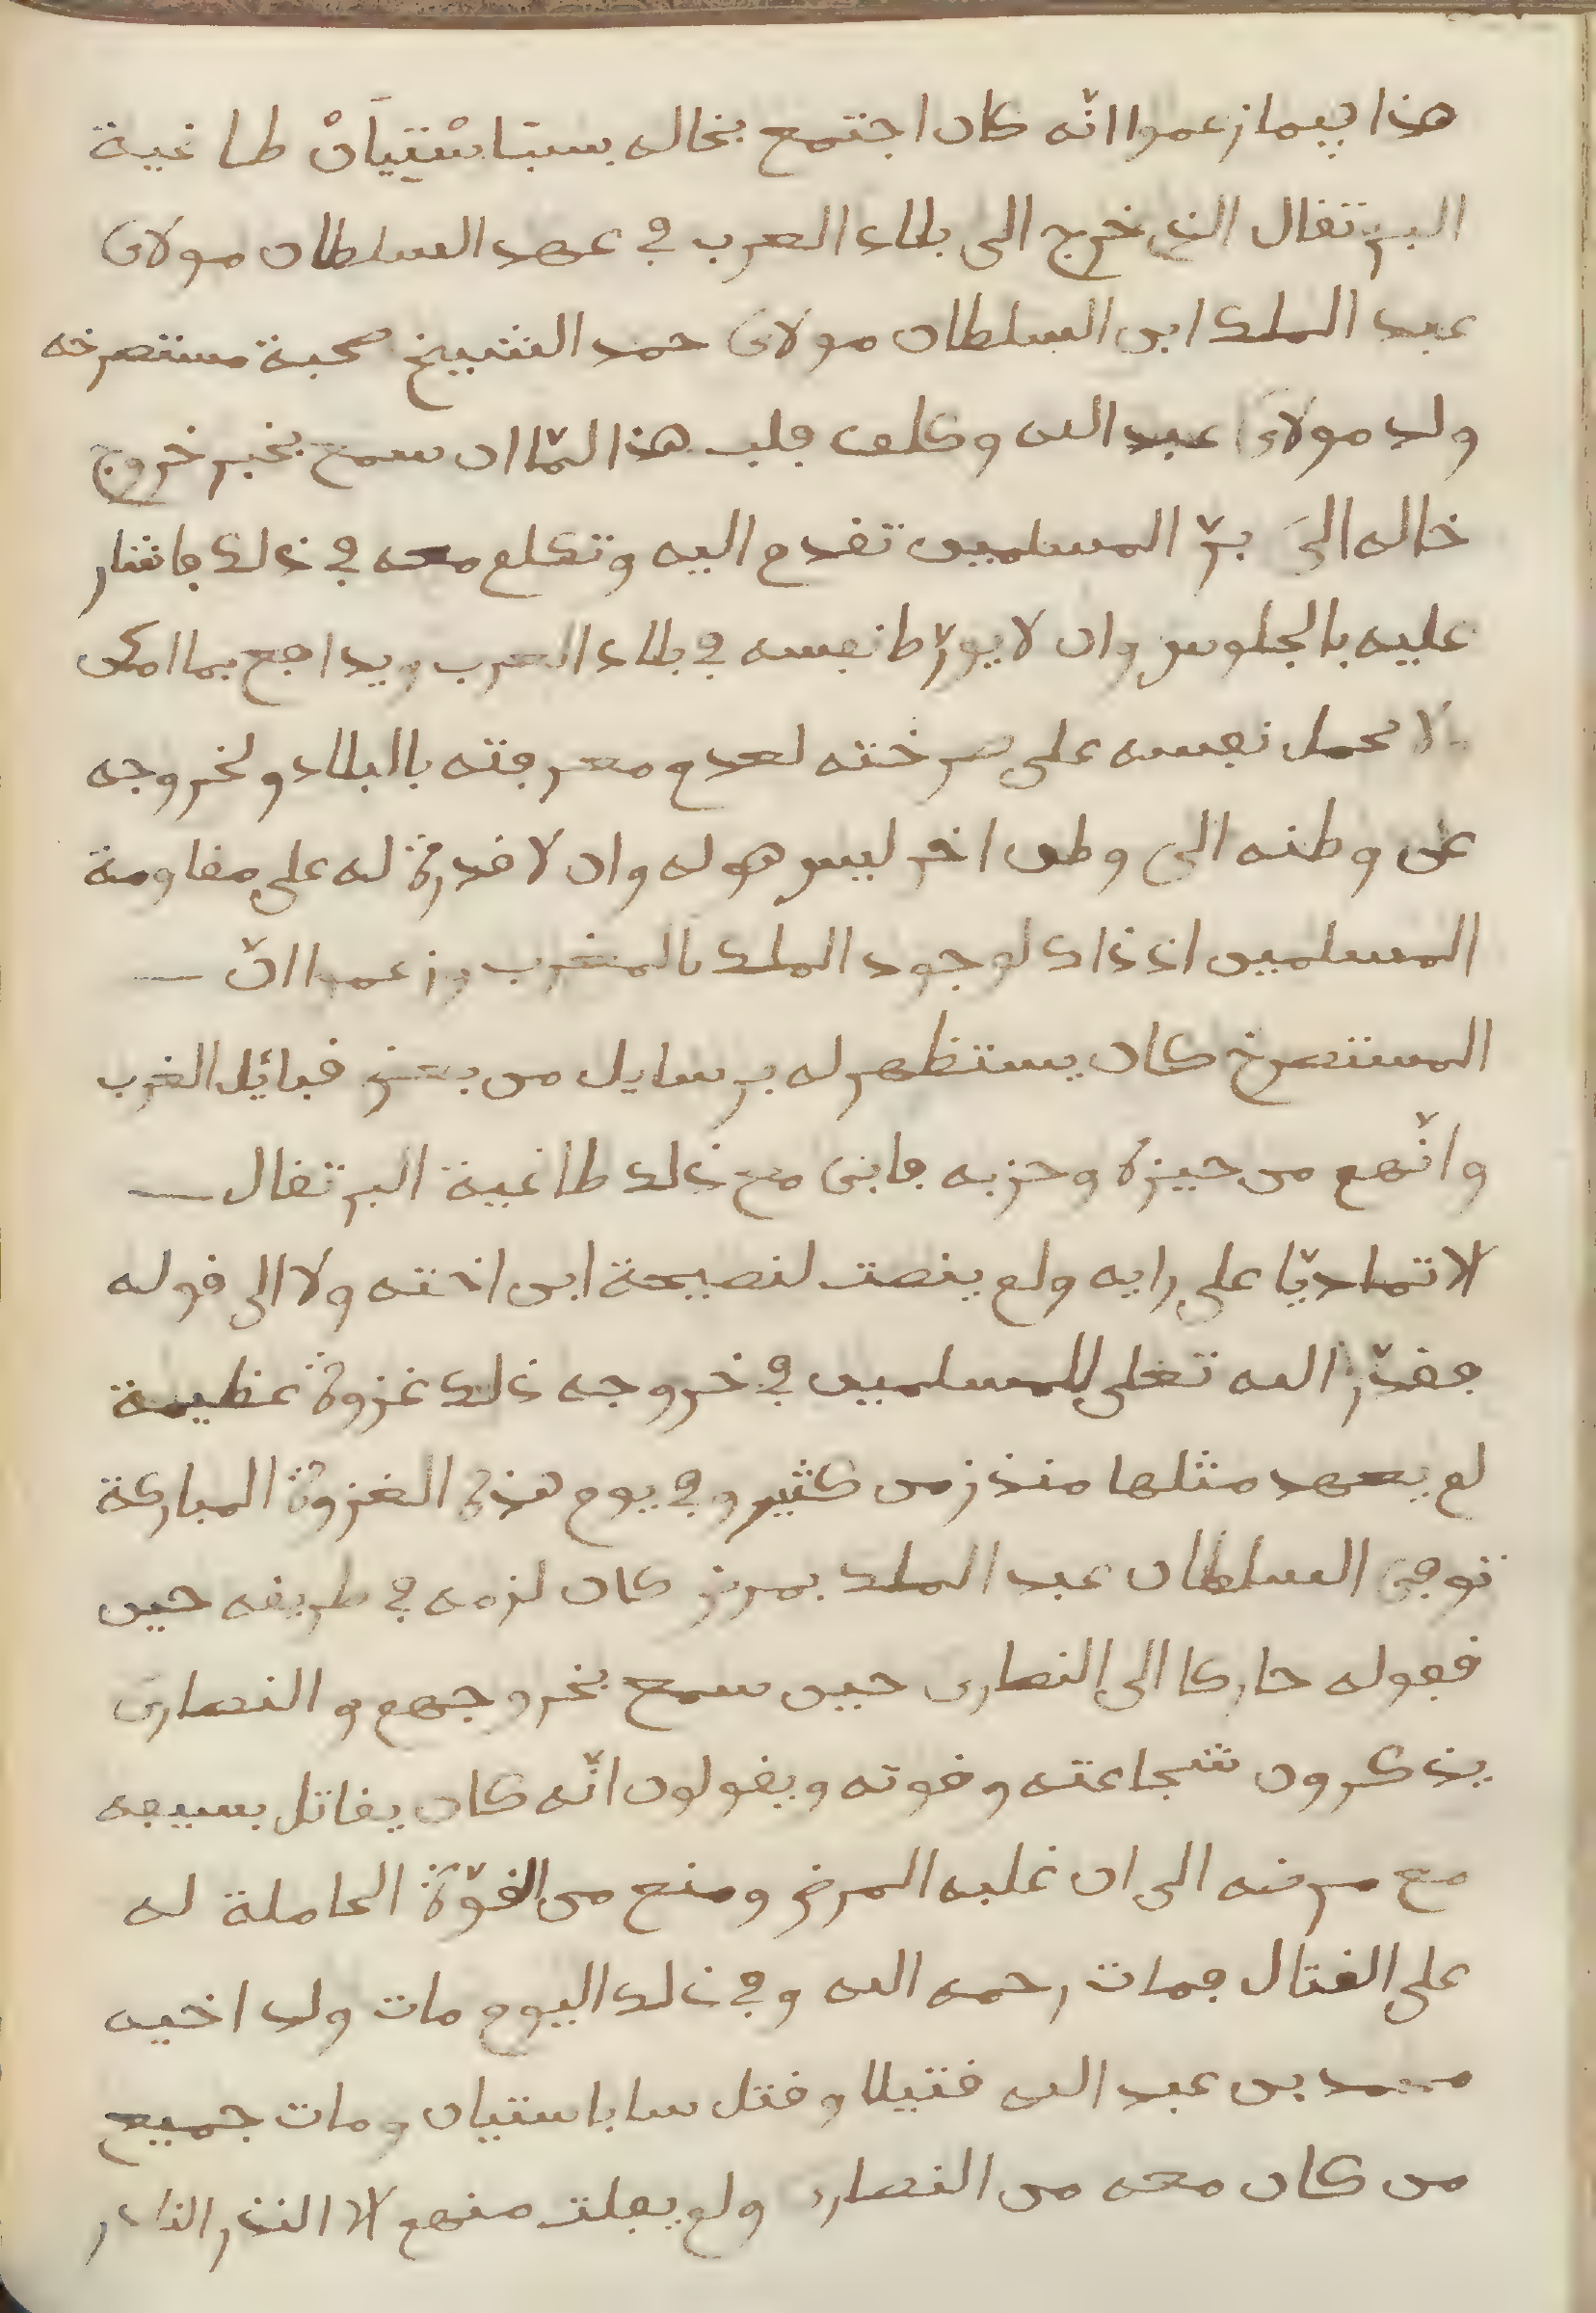 هذا فيما زعموا انّه كان اجتمع بخاله سبَاسْتِيَانْ طاغية
البرتقال الذي خرج الى بلاد العرب في عهد السلطان مولاى
عبد الملك ابن السلطان مولاى حمد الشيخ صحبة مستصرخه
ولد مولاى عبد الله وكلف فلب هذا لمّا ان سمع بخبر خروج
خاله الىَ برّ المسلمين تقدم اليه وتكلم معه في ذلك فاشار
عليه بالجلوس وان لا يورّط نفسه في بلاد العرب ويدافع بما امكن
ولا يحمل نفسه على صرخته لعدم معرفته بالبلاد ولخروجه
عن وطنه الى وطن اخر ليس هو له وان لا قدرة له على مقاومة
المسلمين اذ ذاك لوجود الملك بالمغرب وزعموا انّ
المستصرخ كان يستظهر له برسايل من بعض قبائل الغرب
وانّهم من حيزه وحزبه فابى مع ذلك طاغية البرتقال
الا تماديّا على رايه ولم ينصت لنصيحة ابن اخته ولا الى قوله
فقدّر الله تعلى للمسلمين في خروجه ذلك غزوة عظيمة
لم يعهد مثلها منذ زمن كثير وفي يوم هذه الغزوة المباركة
توفى السلطان عبد الملك بمرض كان لزمه في طريقه حين
قفوله حاركا الى النصارى حين سمع بخروجهم والنصارى
يذكرون شجاعته وقوته ويقولون انّه كان يقاتل بسيفه
مع مرضه الى ان غلبه المرض ومنع من القوّة الحاملة له
على القتال فمات رحمه الله وفي ذلك اليوم مات ولد اخيه
محمد بن عبد الله قتيلا وقتل ساباستيان ومات جميع
من كان معه من النصارى ولم يفلت منهم الا النذر النادر